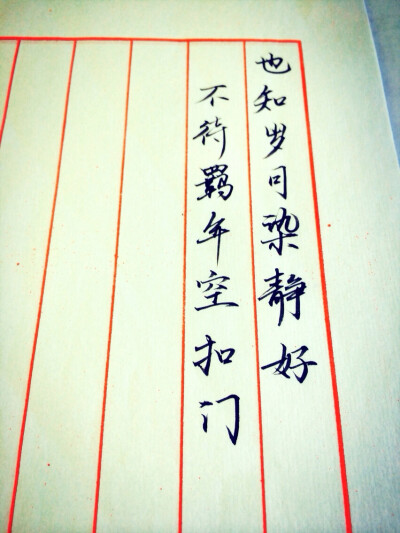 也知岁月染静好
不待羁年空扣门